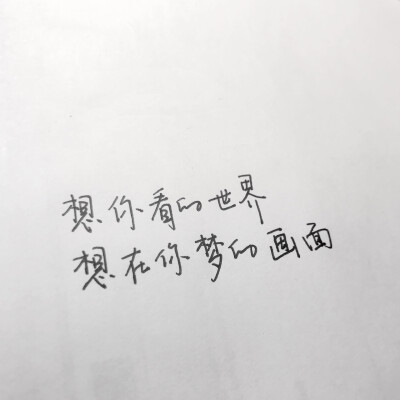 想你看的世界
想在你梦的画面